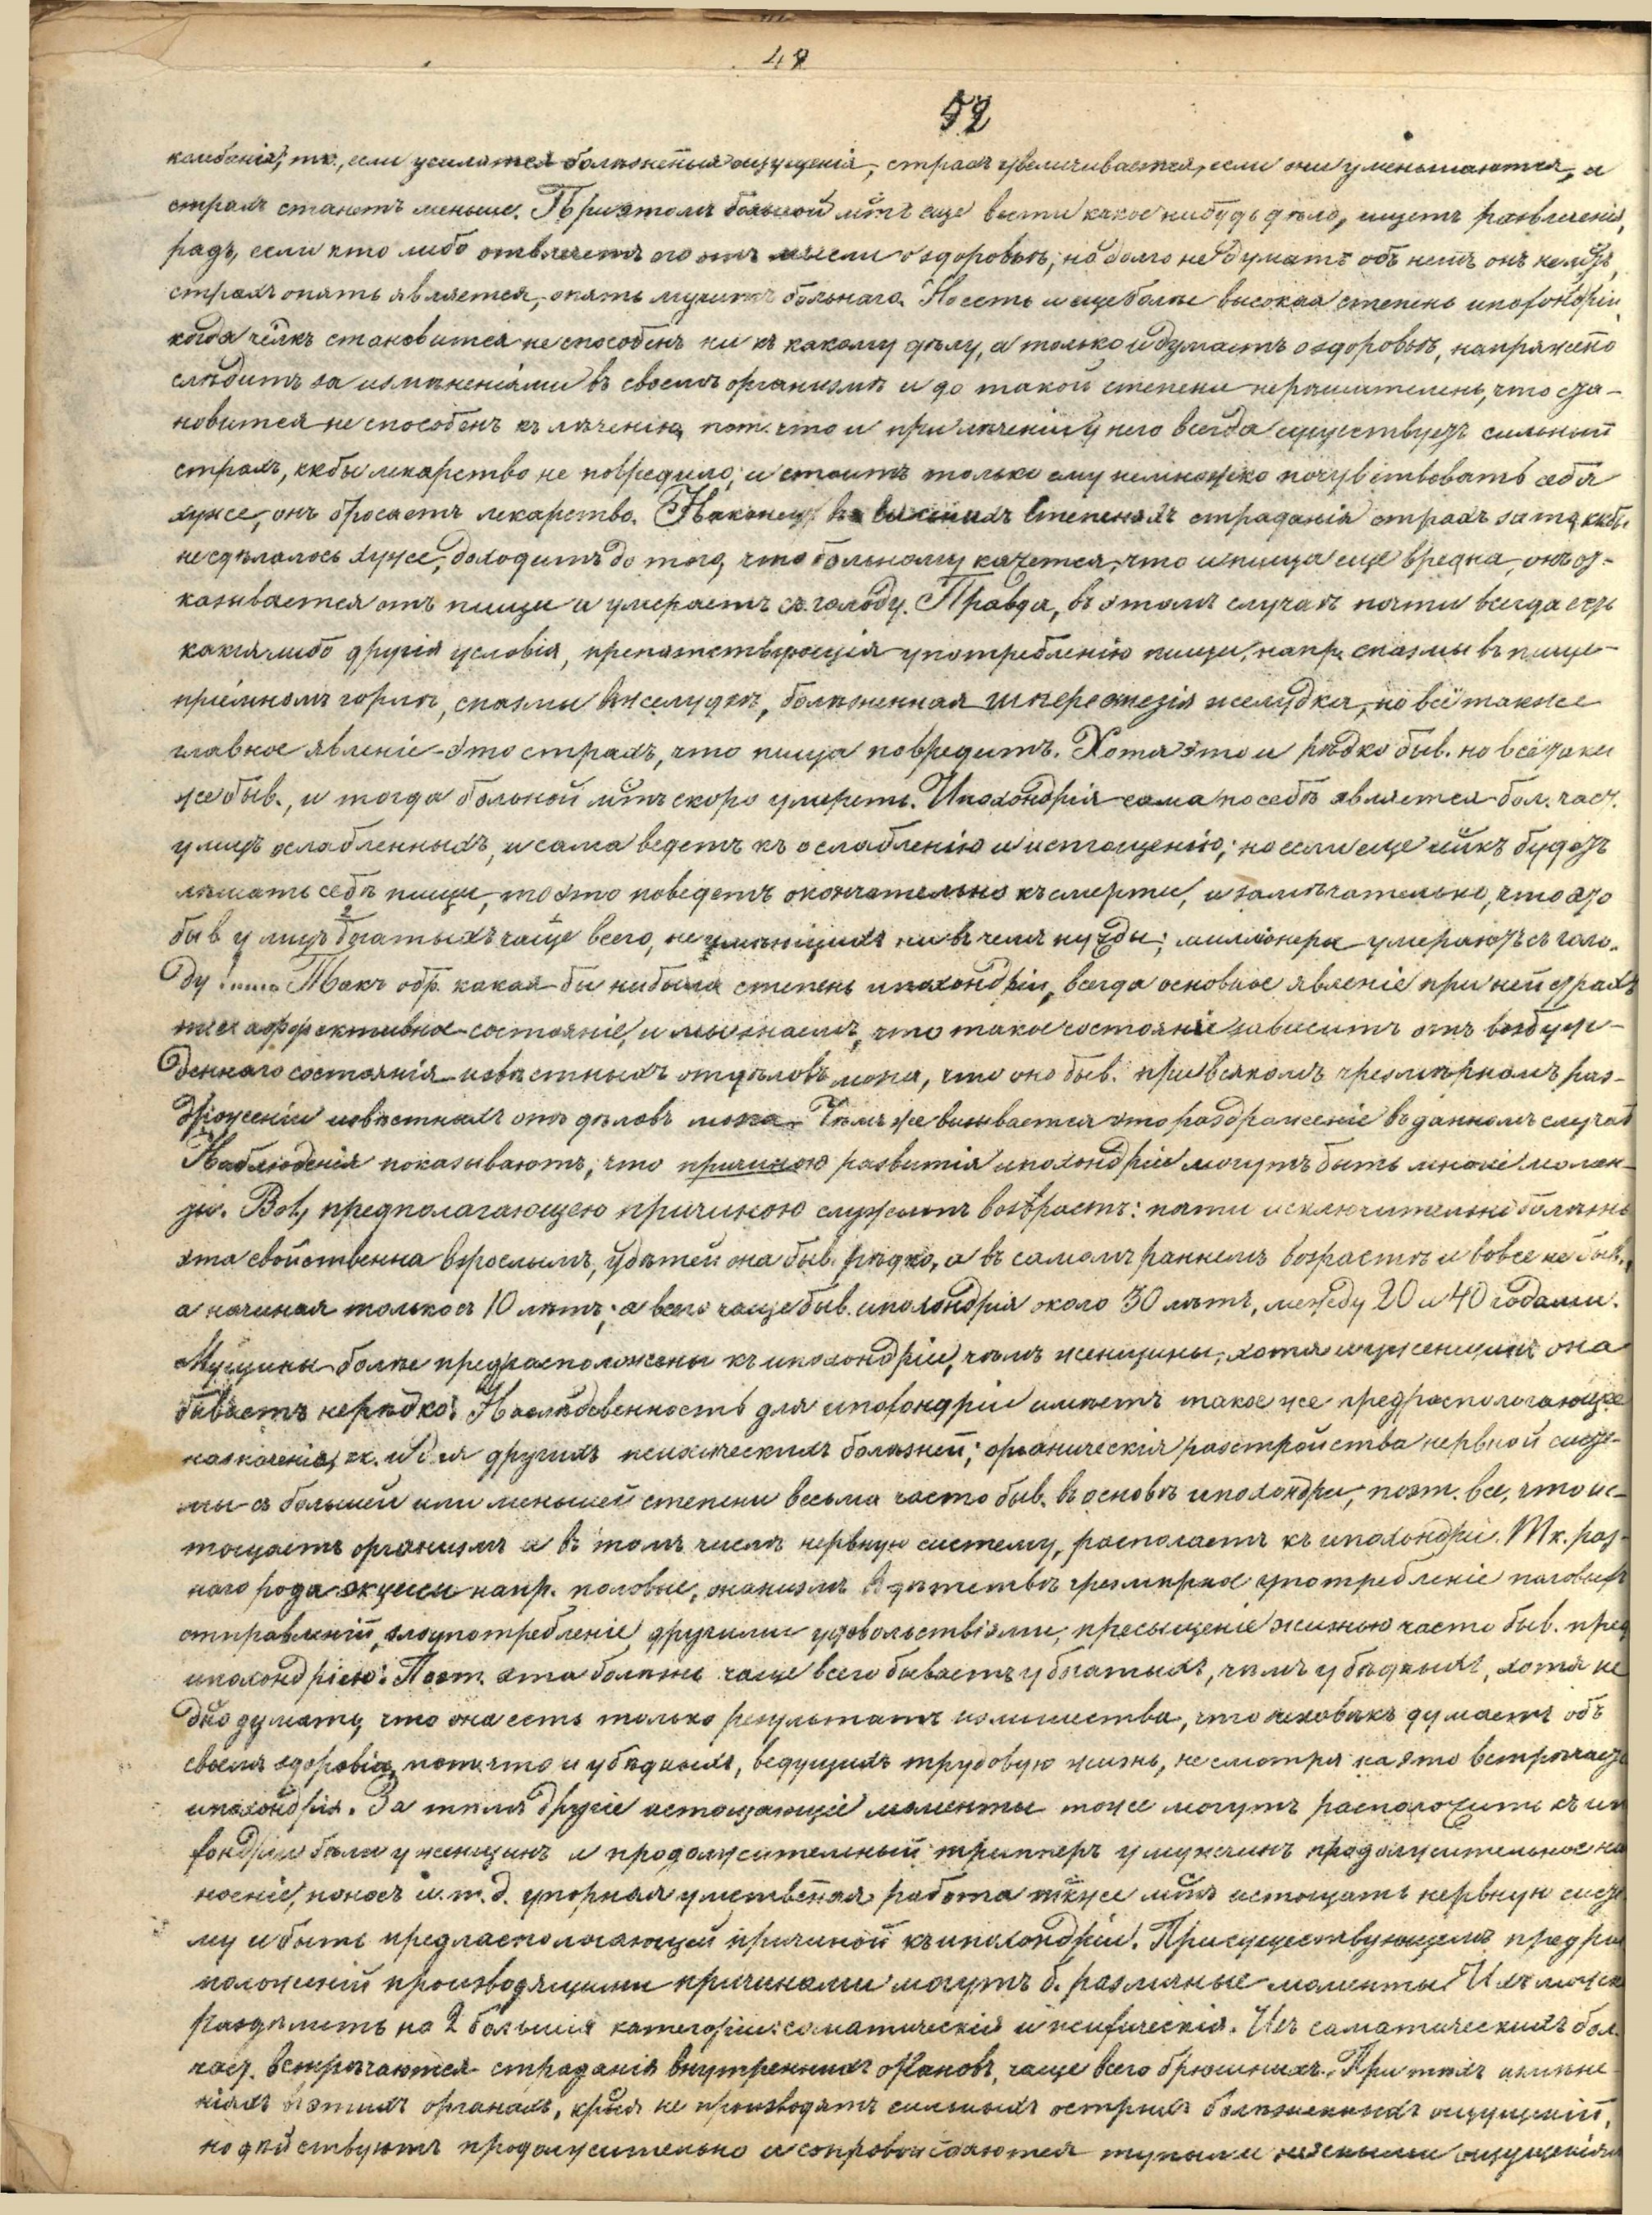 48
52
колебанія, то, если усилятся болѣзненныя ощущенія, страхъ увеличивается, если они уменьшаются, и
страхъ станетъ меньше. При этомъ больной м͠тъ еще вести какое нибудь дѣло, ищетъ развлеченія,
радъ, если кто либо отвлечетъ его отъ мысли о здоровьѣ, но долго не думать объ немъ онъ не м͠жъ,
страхъ опять является, опять мучитъ больнаго. Но есть и еще болѣе высокая степень ипохондріи,
когда чел͠къ становится не способенъ ни къ какому дѣлу, а только и думаетъ о здоровьѣ, напряжен͠о
слѣдитъ за измѣненіями въ своемъ организмѣ и до такой степени нерѣшителенъ, что ста-
новится не способенъ къ лѣченію, пот. что и при лѣченіи у него всегда существуетъ сильный
страхъ, ккбы лекарство не повредило, и стоитъ только ему немножко почувствовать себя
хуже, онъ бросаетъ лекарство. Наконецъ въ высшихъ степеняхъ страданія страхъ за то, ккбы
не сдѣлалось хуже, доходитъ до того, что больному кажется, что и пища еще вредна, онъ от-
казывается отъ пищи и умираетъ съ голоду. Правда, въ этомъ случаѣ почти всегда есть
какія либо другія условія, препятствующія употребленію пищи, напр. спазмы въ пище-
пріемномъ горлѣ, спазмы въ желудкѣ, болѣзненная гиперестезія желудка, но всё также
главное явленіе - это страхъ, что пища повредитъ. Хотя это и рѣдко быв. но всё таки
же быв., и тогда больной м͠тъ скоро умереть. Ипохондрія сама по себѣ является бол. част.
у лицъ ослабленныхъ, и сама ведетъ къ ослабленію и истощенію; но если еще ч͠лкъ будетъ
лишать себя пищи, то это поведетъ окончательно къ смерти, и замѣчательно, что это
быв у лицъ богатыхъ чаще всего, не имѣющихъ ни въ чемъ нужды; миллiонеры умираютъ съ голо-
ду! Такъ обр. какая бы ни была степень ипохондріи, всегда основное явленіе при ней страхъ
аффективное состояніе, и мы знаемъ, что такое состояніе зависитъ отъ возбуж-
деннаго состоянія извѣстныхъ отдѣловъ мозга, что оно быв. при всякомъ чрезмѣрномъ раз-
драженіи извѣстныхъ отдѣловъ мозга. Чѣмъ же вызывается это раздраженіе въ данномъ случаѣ
Наблюденія показываютъ, что причиною развитія ипохондріи могутъ быть многіе момен-
ты. Вотъ, предполагающею причиною служитъ возрастъ: почти исключительно болѣзнь
эта свойственна взрослымъ, у дѣтей она быв. рѣдко, а въ самомъ раннемъ возрастѣ и вовсе не быв.,
а начиная только съ 10 лѣтъ; а всего чаще быв. ипохондрія около 30 лѣтъ, между 20 и 40 годами.
Мущины болѣе предрасположены къ ипохондріи, чѣмъ женщины, хотя и у женщинъ она
бываетъ нерѣдко. Наслѣдственность для ипохондріи имѣетъ такое же предрасполагающее
назначеніе, кк. и для другихъ психическихъ болѣзней; органическія разстройства нервной систе-
мы въ большей или меньшей степени весьма часто быв. въ основѣ ипохондріи, поэт. все, что ис-
тощаетъ организмъ а въ томъ числѣ нервную систему, располагаетъ къ ипохондріи. Тк. раз-
наго рода эксцессы напр. половые, онанизмъ въ дѣтствѣ чрезмѣрное употребленіе половыхъ
отправленій, злоупотребленіе другими удовольствіями, пресыщеніе жизнью часто быв. пред
ипохондріею. Поэт. эта болѣзнь чаще всего бываетъ у богатыхъ, чѣмъ у бѣдныхъ, хотя не
д͠но думать, что она есть только результатъ излишества, что человѣкъ думаетъ объ
своемъ здоровіи, пот. что и у бѣдныхъ, ведущихъ трудовую жизнь, не смотря на это встрѣчается
ипохондрія. За тѣмъ другіе истощающіе моменты тоже могутъ расположить къ ипо
хондріи бѣли у женщинъ и продолжительный трипперъ у мужчинъ продолжительное на
ношеніе, поносъ и т. д. упорная умственная работа т͠кже м͠тъ истощать нервную систе
му и быть предрасполагающей причиной къ ипохондріи. При существующемъ предрас
положеніи производящими причинами могутъ б. различные моменты. Ихъ можно
раздѣлить на 2 большія категоріи: соматическія и психическія. Изъ саматическихъ бол.
част. встрѣчаются страданія внутреннихъ органовъ, чаще всего брюшныхъ. При тѣхъ измѣне-
ніяхъ въ этихъ органахъ, кр͠ыя не производятъ сильныхъ острыхъ болѣзненныхъ ощущеній,
но дѣйствуютъ продолжительно и сопровождаются тупыми неясными ощущеніями